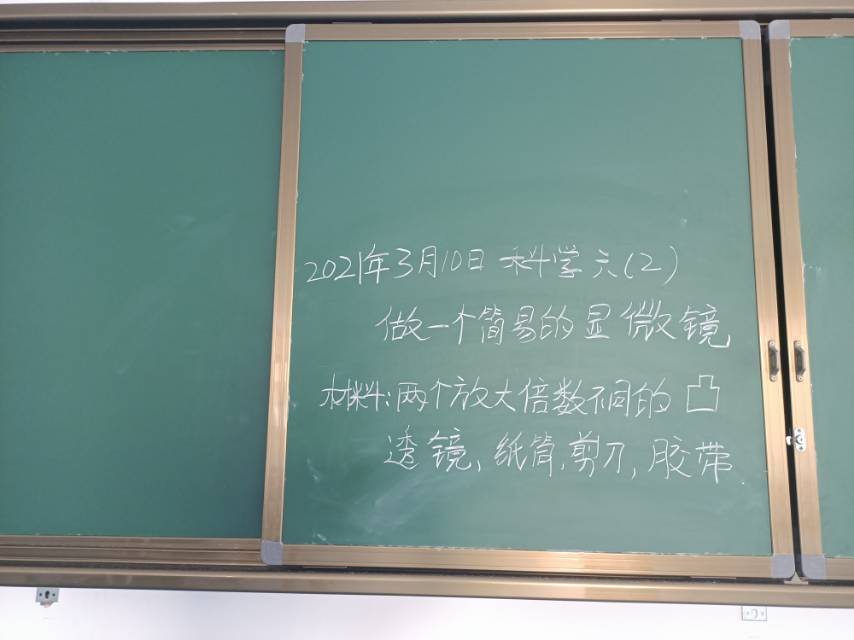 2021年3月10日 科学六(2)
做一个简易的显微镜
材料:两个放大倍数不同的凸
透镜、纸筒、剪刀,胶带